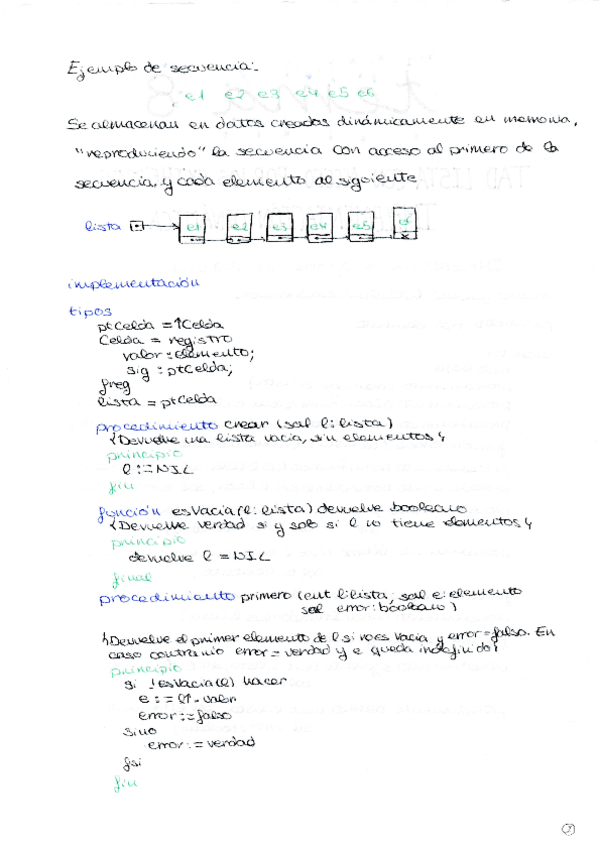 Ejemplo de secuencia:-
e1 e2 e3 e4 e5 e6
Se almacenan en datos creados dinámicamente en memoria,
"reproduciendo" la secuencia con acceso al primero de la
secuencia, y cada elemento al siguiente
lista e1 e2 e3 e4 e5 e6
implementación
tipos
ptCelda = ↑Celda
Celda = registro
valor : elemento;
sig : ptCelda;
freg
lista = ptCelda
procedimiento crear (sal l: lista)
{Devuelve una lista vacía, sin elementos}
principio
l := NIL
fin
función esVacia(l: lista) devuelve booleano
{Devuelve verdad si y solo si l no tiene elementos}
principio
devuelve l = NIL
final
procedimiento primero (ent l:lista; sal e: elemento
sal error: booleano)
{Devuelve el primer elemento de l si no es vacia y error = falso. En
caso contrario error = verdad y e queda indefinido}
principio
si !esVacia(l) hacer
e := l↑.valor
error := falso
sino
error := verdad
fsi
fin